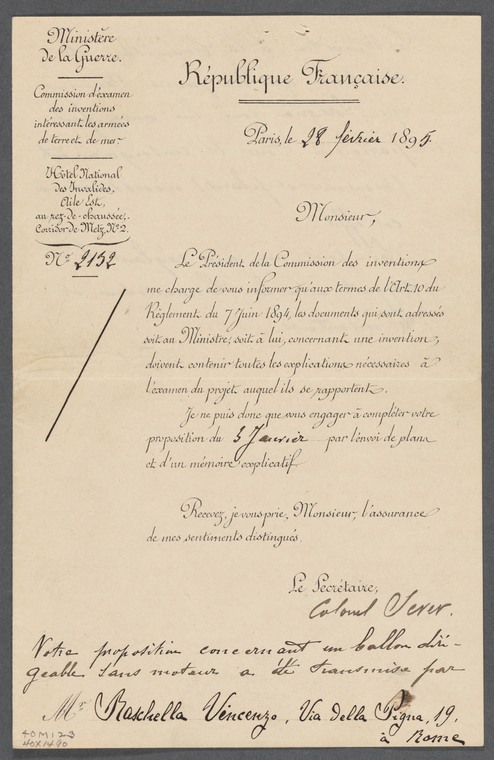 Ministère
de la Guerre.
Commission d'examen
des inventions
intéressant les armées
de terre et de mer
Hôtel National
des Invalides,
Aile Est,
au rez-de-chaussée,
Corridor de Metz, No. 2.
No. 2152
République Française.
Paris, le 28 février 1895.
Monsieur,
Le Président de la Commission des inventions
me charge de vous informer qu'aux termes de l'Art. 10 du
Règlement du 7 Juin 1894, les documents qui sont adressés
soit au Ministre, soit à lui, concernant une invention,
doivent contenir toutes les explications nécessaires à
l'examen du projet auquel ils se rapportent.
Je ne puis donc que vous engager à compléter votre
proposition du 3 Janvier par l'envoi de plans
et d'un mémoire explicatif.
Recevez, je vous prie, Monsieur, l'assurance
de mes sentiments distingués.
Le Secrétaire,
Colonel Sever.
Votre proposition concernant un ballon diri-
geable sans moteur a été transmise par
Mr Raschella Vincenzo, Via della Pigna, 19.
à Rome
40M123
40X1490